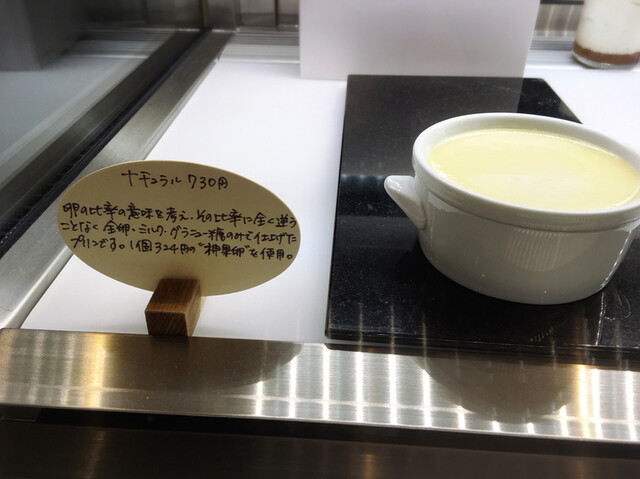 ナチュラル 730円
卵の比率の意味を考え、その比率に全く逆う
ことなく全卵・ミルク・グラニュー糖のみで仕上げた
プリンです。1個324円の"極果卵"を使用。